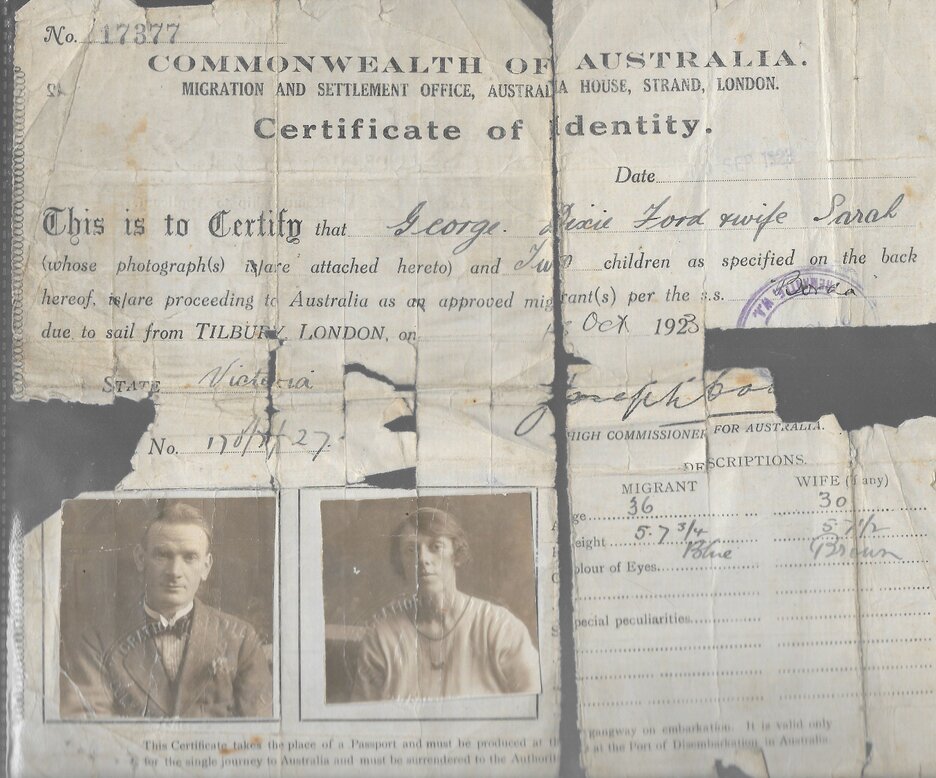 No. 17377
COMMONWEALTH OF AUSTRALIA.
MIGRATION AND SETTLEMENT OFFICE, AUSTRALIA HOUSE, STRAND, LONDON.
Certificate of Identity.
Date
This is to Certify that George Dixie Ford & wife Sarah
(whose photograph(s) is/are attached hereto) and Two children as specified on the back
hereof, is/are proceeding to Australia as an approved migrant(s) per the s.s. Borda
due to sail from TILBURY, LONDON, on Oct 1923
STATE Victoria
Joseph Coo
HIGH COMMISSIONER FOR AUSTRALIA.
No.
DESCRIPTIONS.
MIGRANT WIFE (if any)
ge 36 30
eight 5·7 3/4 5·7 1/2
olour of Eyes Blue Brown
pecial peculiarities
This Certificate takes the place of a Passport and must be produced at th gangway on embarkation. It is valid only
for the single journey to Australia and must be surrendered to the Authorit at the Port of Disembarkation in Australia.